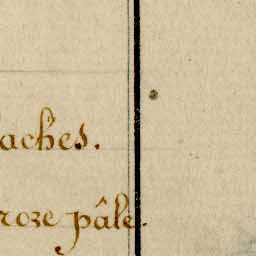 aches.
roze pâle.